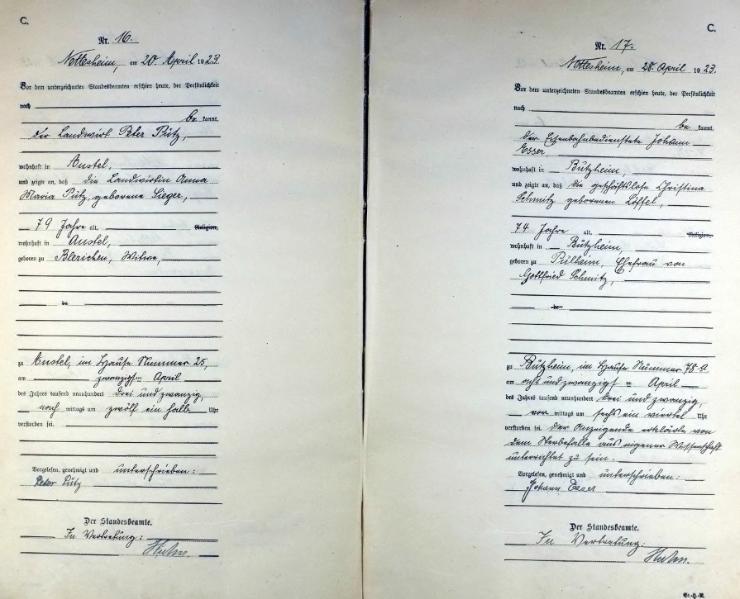 C.
Nr. 16.
Nettesheim, am 20. April 1923.
Vor dem unterzeichneten Standesbeamten erschien heute, der Persönlichkeit
nach
be kannt,
der Landwirt Peter Pütz,
wohnhaft in Anstel,
und zeigte an, daß die Landwirtin Anna
Maria Pütz, geborene Sieger,
79 Jahre alt, Religion,
wohnhaft in Anstel,
geboren zu Blerichen, Witwe,
zu Anstel, im Hause Nummer 25,
am zwanzigsten April
des Jahres tausend neunhundert drei und zwanzig,
nach mittags um zwölf ein halb Uhr
verstorben sei.
Vorgelesen, genehmigt und unterschrieben:
Peter Pütz
Der Standesbeamte.
In Vertretung:
C.
Nr. 17.
Nettesheim, am 28. April 1923.
Vor dem unterzeichneten Standesbeamten erschien heute, der Persönlichkeit
nach
be kannt,
der Eisenbahnbedienstete Johann
Esser
wohnhaft in Bützheim,
und zeigte an, daß die geschäftslose Christina
Schmitz geborenen Löffel,
74 Jahre alt, Religion,
wohnhaft in Bützheim,
geboren zu Pulheim, Ehefrau von
Gottfried Schmitz,
zu Bützheim, im Hause Nummer 78 a
am acht und zwanzigsten April
des Jahres tausend neunhundert drei und zwanzig,
vor mittags um sechs ein viertel Uhr
verstorben sei. Der Anzeigende erklärte von
dem Sterbefalle aus eigener Wissenschaft
unterrichtet zu sein.
Vorgelesen, genehmigt und unterschrieben:
Johann Esser
Der Standesbeamte.
In Vertretung: